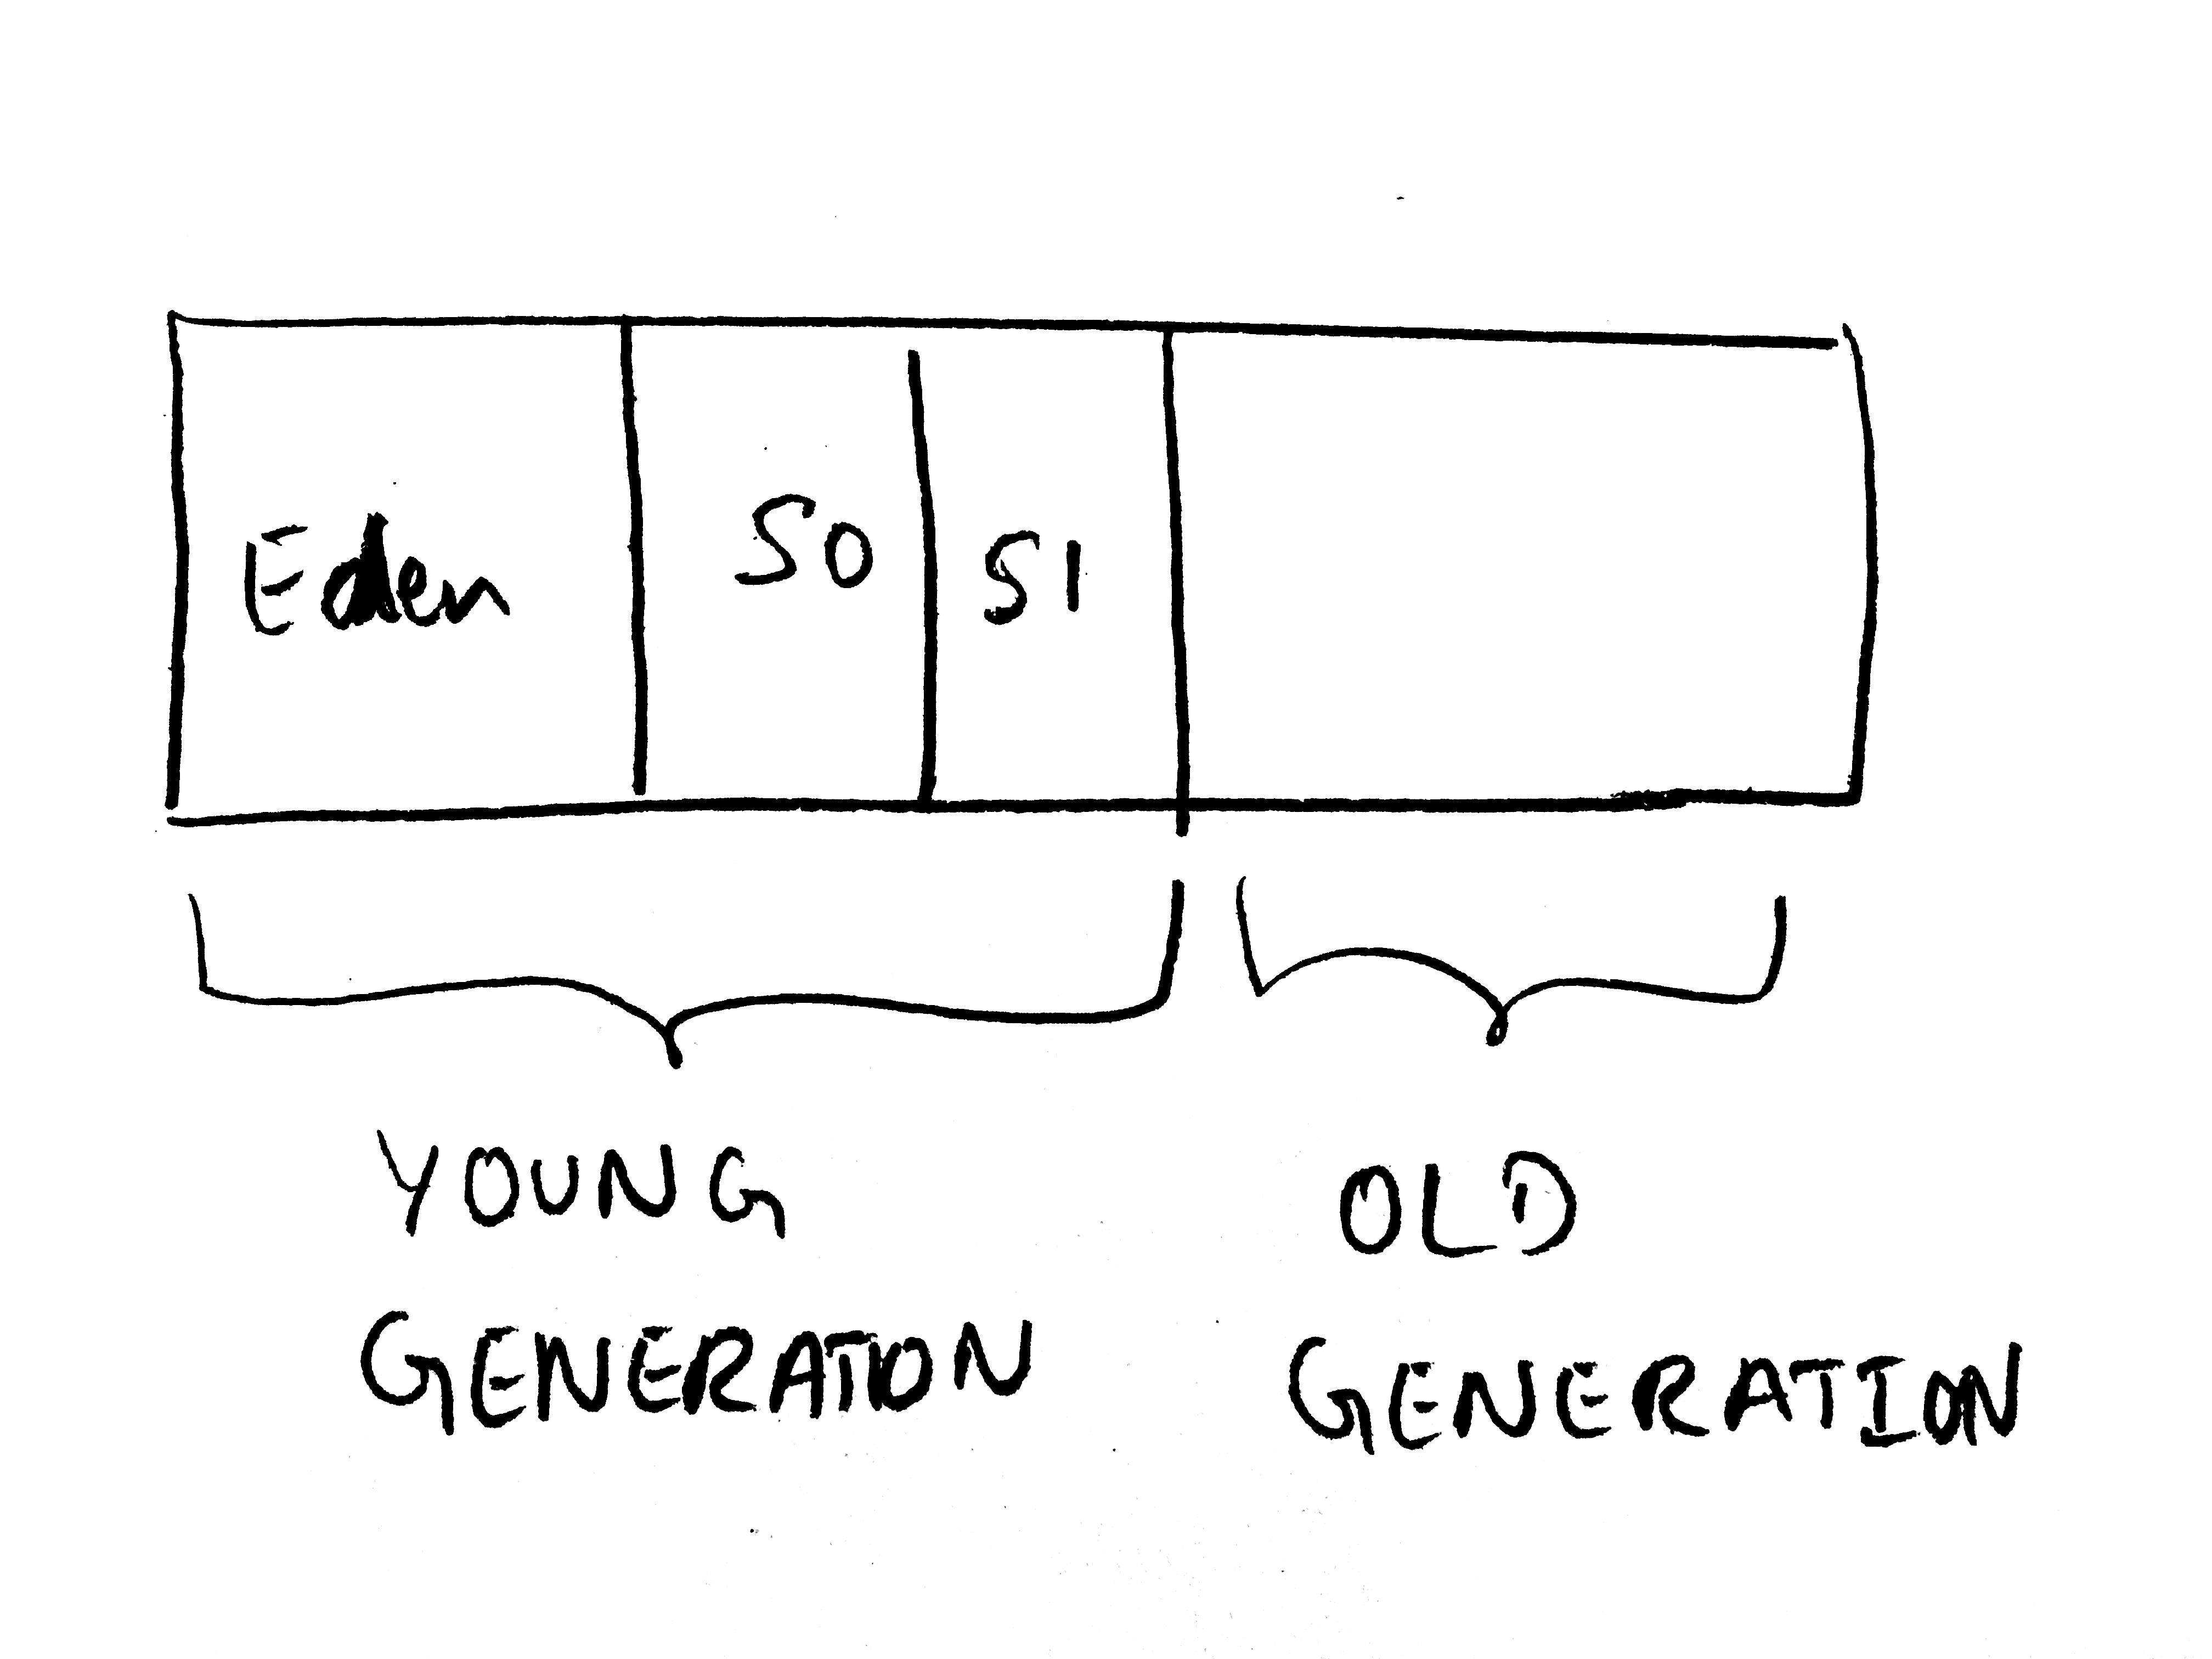 Eden
S0
S1
YOUNG
GENERATION
OLD
GENERATION